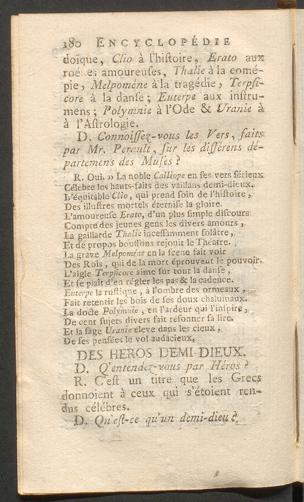 180 ENCYCLOPÉDIE
doïque, Clio à l'histoire, Erato aux
poesies amoureuses, Thalie à la comé-
pie, Melpomène à la tragédie, Terpsi-
core à la danse; Euterpe aux instru-
mens; Polymnie à l'Ode & Uranie à
à l'Astrologie.
D. Connoissez-vous les Vers, faits
par Mr. Perault, sur les différens dé-
partemens des Muses?
R. Oui. » La noble Calliope en ses vers sérieux
Célébre les hauts-faits des vaillans demi-dieux.
L'équitable Clio, qui prend soin de l'histoire,
Des illustres mortels éternise la gloire.
L'amoureuse Erato, d'un plus simple discours
Compte des jeunes gens les divers amours,
La gaillarde Thalie incessamment folâtre,
Et de propos bouffons rejouit le Théatre.
La grave Melpomène en la scene fait voir
Des Rois, qui de la mort éprouvent le pouvoir.
L'agile Terpsicore aime sur tout la danse,
Et se plaît d'en régler les pas & la cadence.
Euterpe la rustique, à l'ombre des ormeaux,
Fait retentir les bois de ses doux chalumaux.
La docte Polymnie, en l'ardeur qui l'inspire,
De cent sujets divers fait resonner sa lire.
Et la sage Uranie eleve dans les cieux,
De ses pensées le vol audacieux,
DES HEROS DEMI-DIEUX.
D. Qu'entendez-vous par Héros?
R. C'est un titre que les Grecs
donnoient à ceux qui s'étoient ren-
dus célébres.
D. Qu'est-ce qu'un demi-dieu?